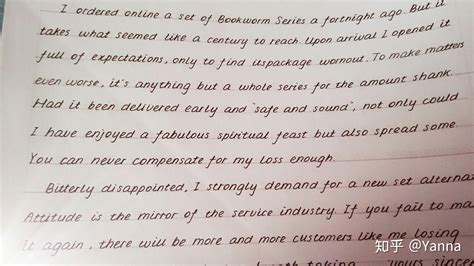 I ordered online a set of Bookworm Series a fortnight ago. But it
takes what seemed like a century to reach. Upon arrival I opened it
full of expectations, only to find itspackage wornout. To make matters
even worse, it's anything but a whole series for the amount shank.
Had it been delivered early and "safe and sound", not only could
I have enjoyed a fabulous spiritual feast but also spread some.
You can never compensate for my loss enough.
Bitterly disappointed, I strongly demand for a new set alternat
Attitude is the mirror of the service industry. If you fail to ma
it again, there will be more and more customers like me losing
taking yours since
知乎 @Yanna